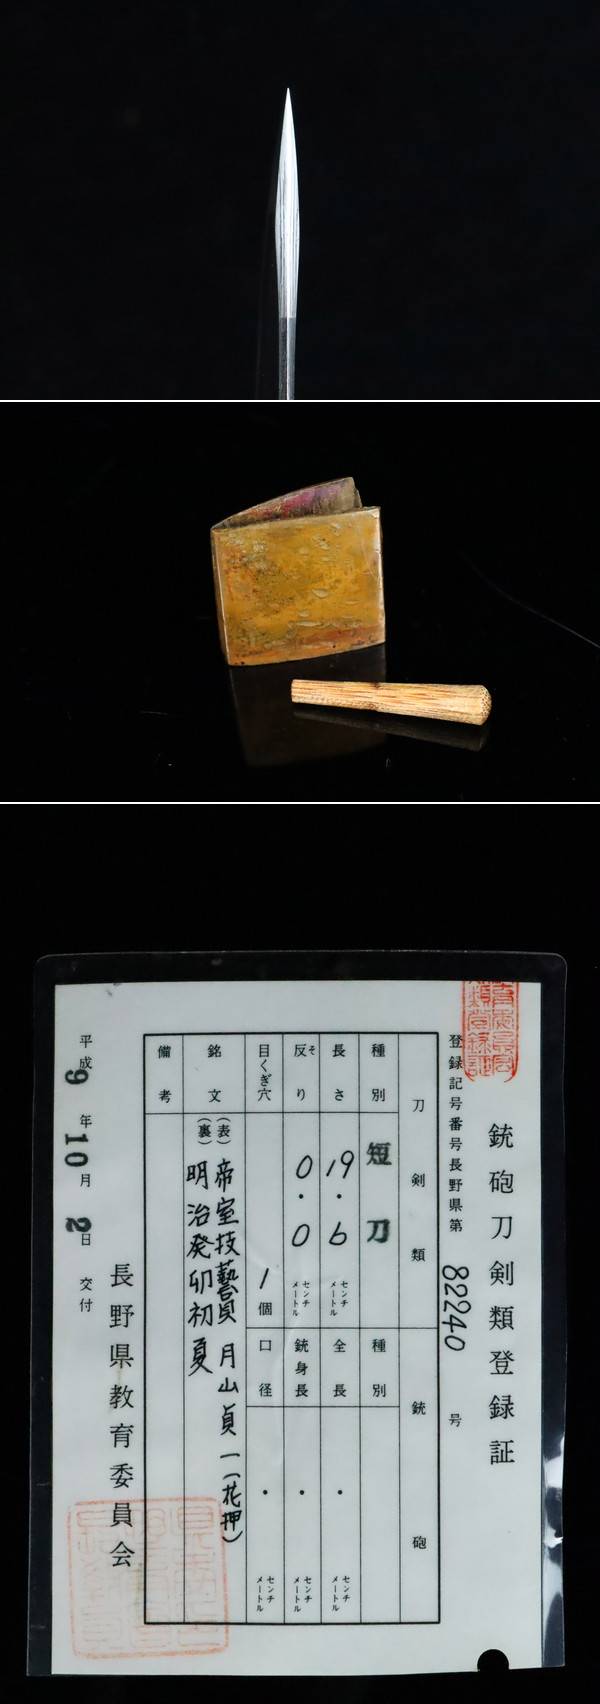 銃砲刀剣類登録証
登録記号番号長野県第 82240 号
刀剣類
銃砲
種別 短刀
種別
長さ 19.6 センチメートル
全長 ・ センチメートル
反り そ 0.0 センチメートル
銃身長 ・ センチメートル
目くぎ穴 1個
口径 ・ センチメートル
銘文 (表) 帝室技藝員 月山貞一(花押)
(裏) 明治癸卯初夏
備考
平成9年10月2日 交付
長野県教育委員会